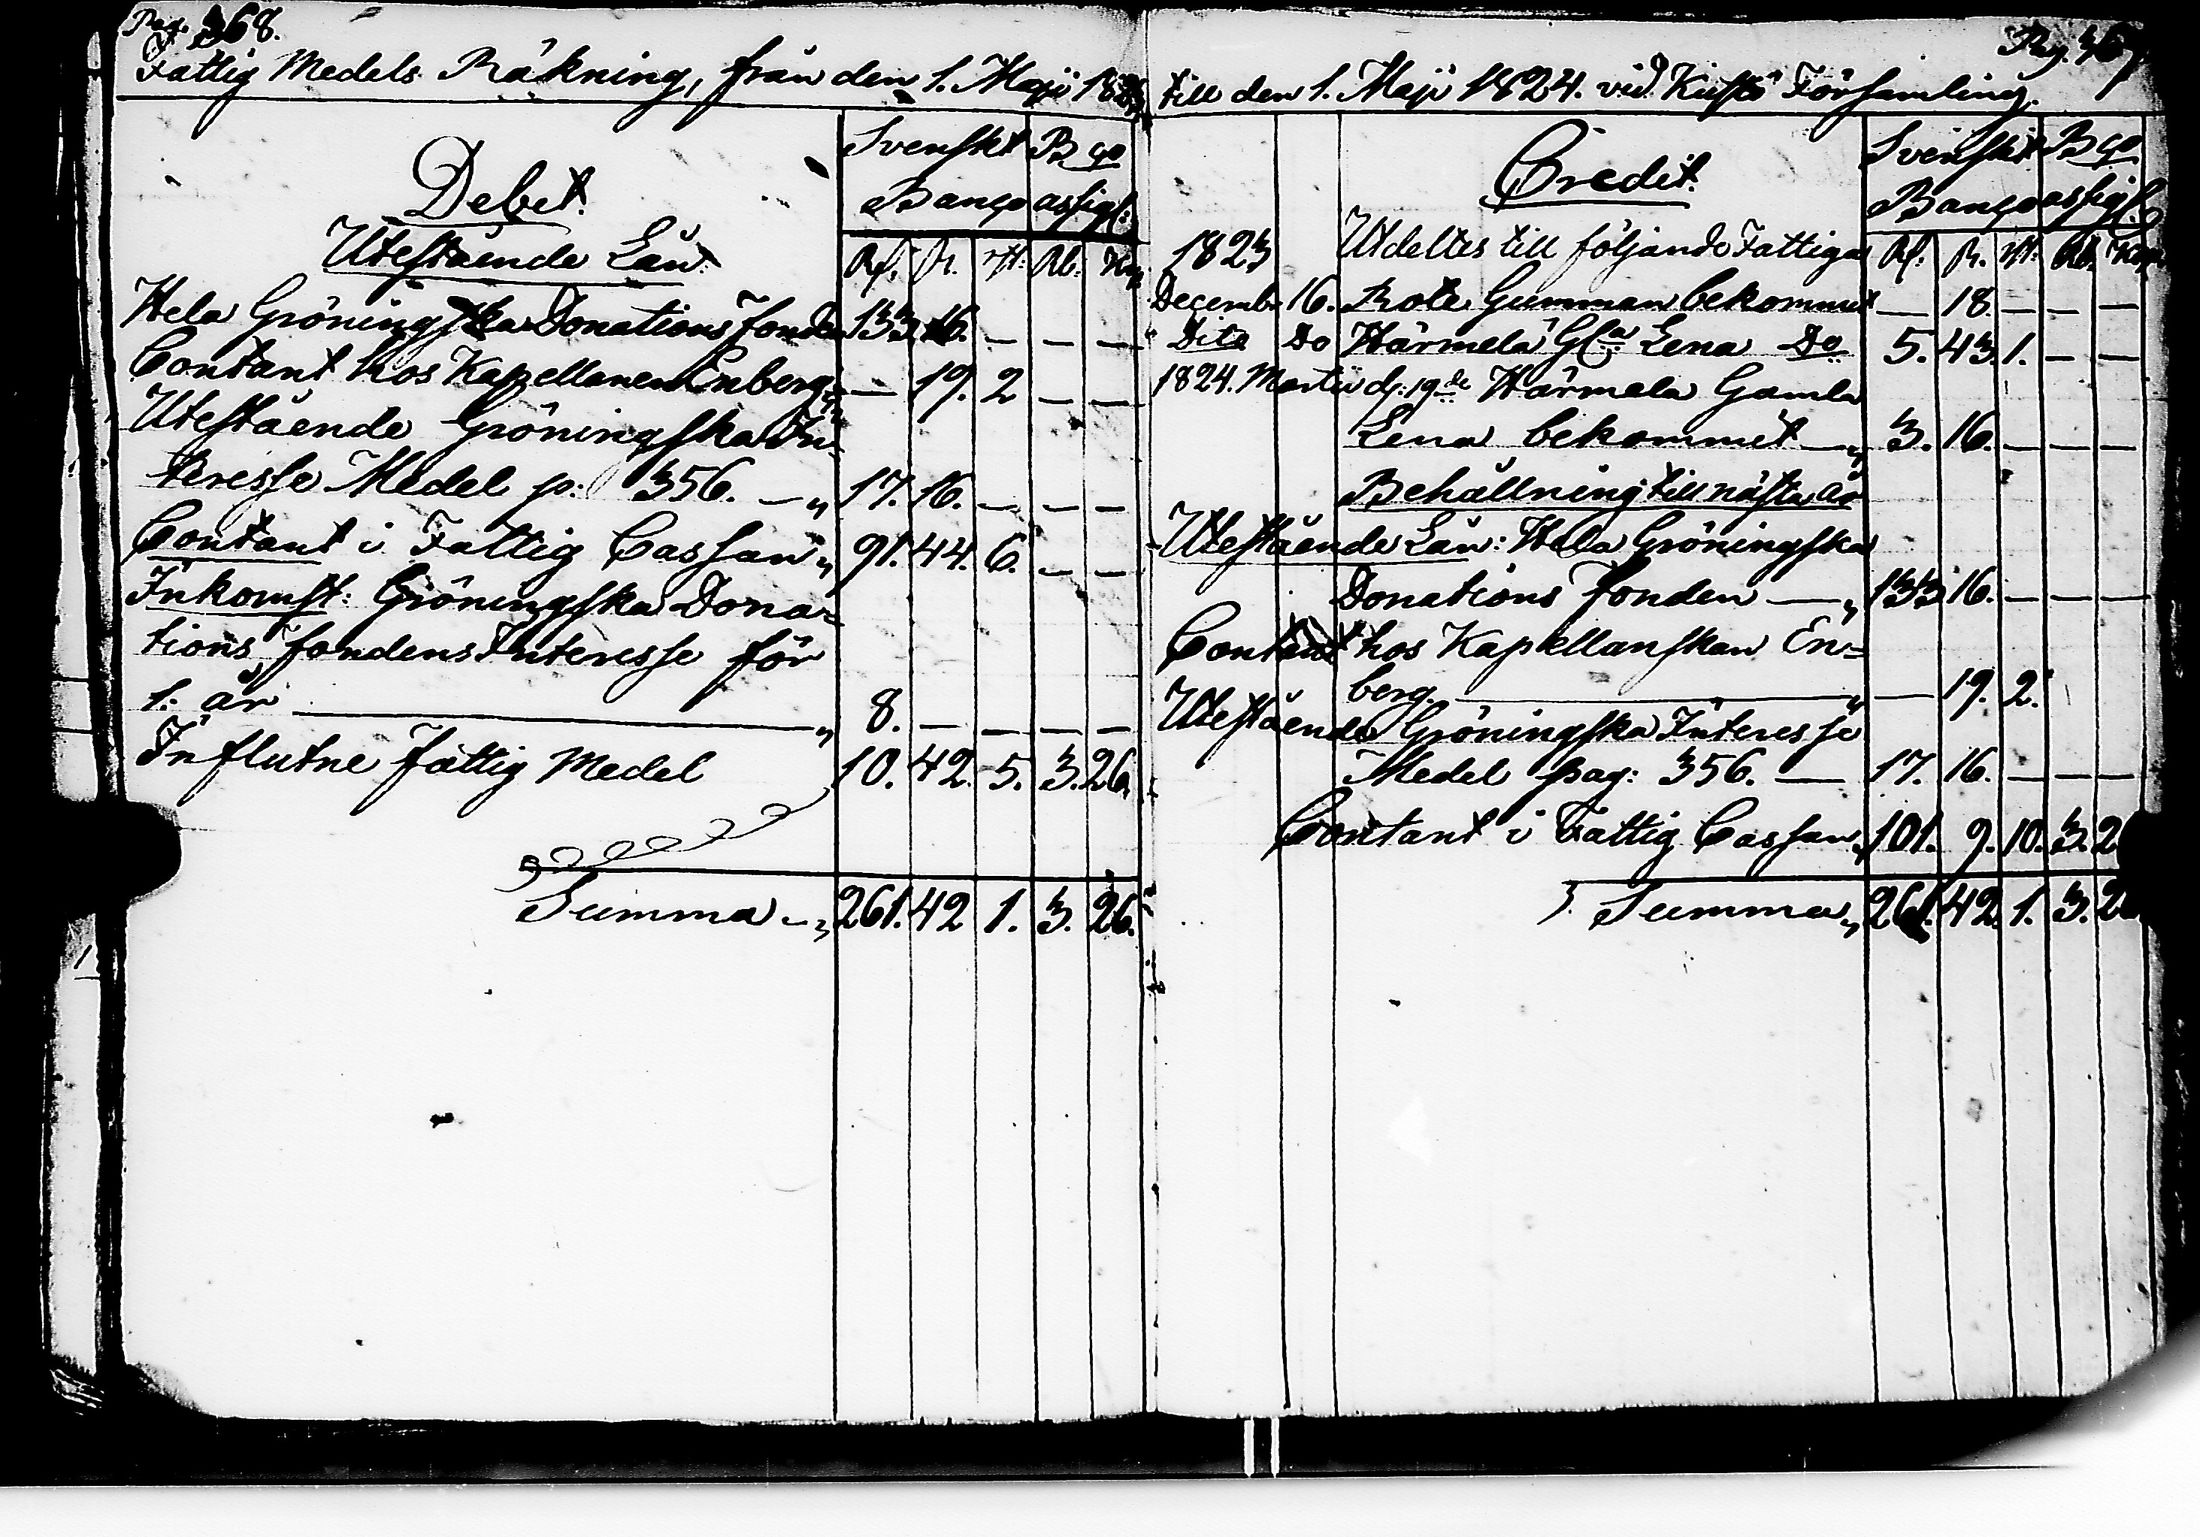 Pag. 368.
Fattig Medels Räkning, från den 1. Maji 1823
Debet.
Svenskt Banco
Bco assign:
Utestående Lån:
Rd. sk. rst: Rb. Kop.
Hela Gröningska Donations fonden 133. 16. — — —
Contant hos Kapellanen Enberg „ — 19. 2 — —
Utestående Gröningska In-
teresse Medel p: 356. — „ 17. 16. — — —
Contant i Fattig Cassan „ 91. 44. 6. — —
Inkomst: Gröningska Dona-
tions fondens Interesse för
1. år — „ 8. — — — —
Influtne fattig Medel 10. 42. 5. 3. 26.
Summa — „ 261. 42 1. 3. 26.
Pag. 369
till den 1. Maji 1824. vid Kustö Församling.
Credit.
Svenskt Banco
Bco assign:
1823 Utdeltes till följande Fattiga Rd. sk. rst. Rb. Kop.
Decemb. 16. Rote Gumman bekommit — 18. — — —
Dito Do Härmela Gla Lena Do 5. 43. 1. — —
1824. Martii d: 19de Härmela Gamla
Lena bekommit — „ 3. 16. — — —
Behållning till nästa år
Utestående Lån: Hela Gröningska
Donations fonden — „ 133 16. — — —
Contant hos Kapellanskan En=
berg — „ — 19. 2.
Utestående Gröningska Interesse
Medel pag: 356. — 17. 16. — — —
Contant i Fattig Cassan „ 101. 9. 10. 3. 2
Summa „ 261. 42. 1. 3. 2